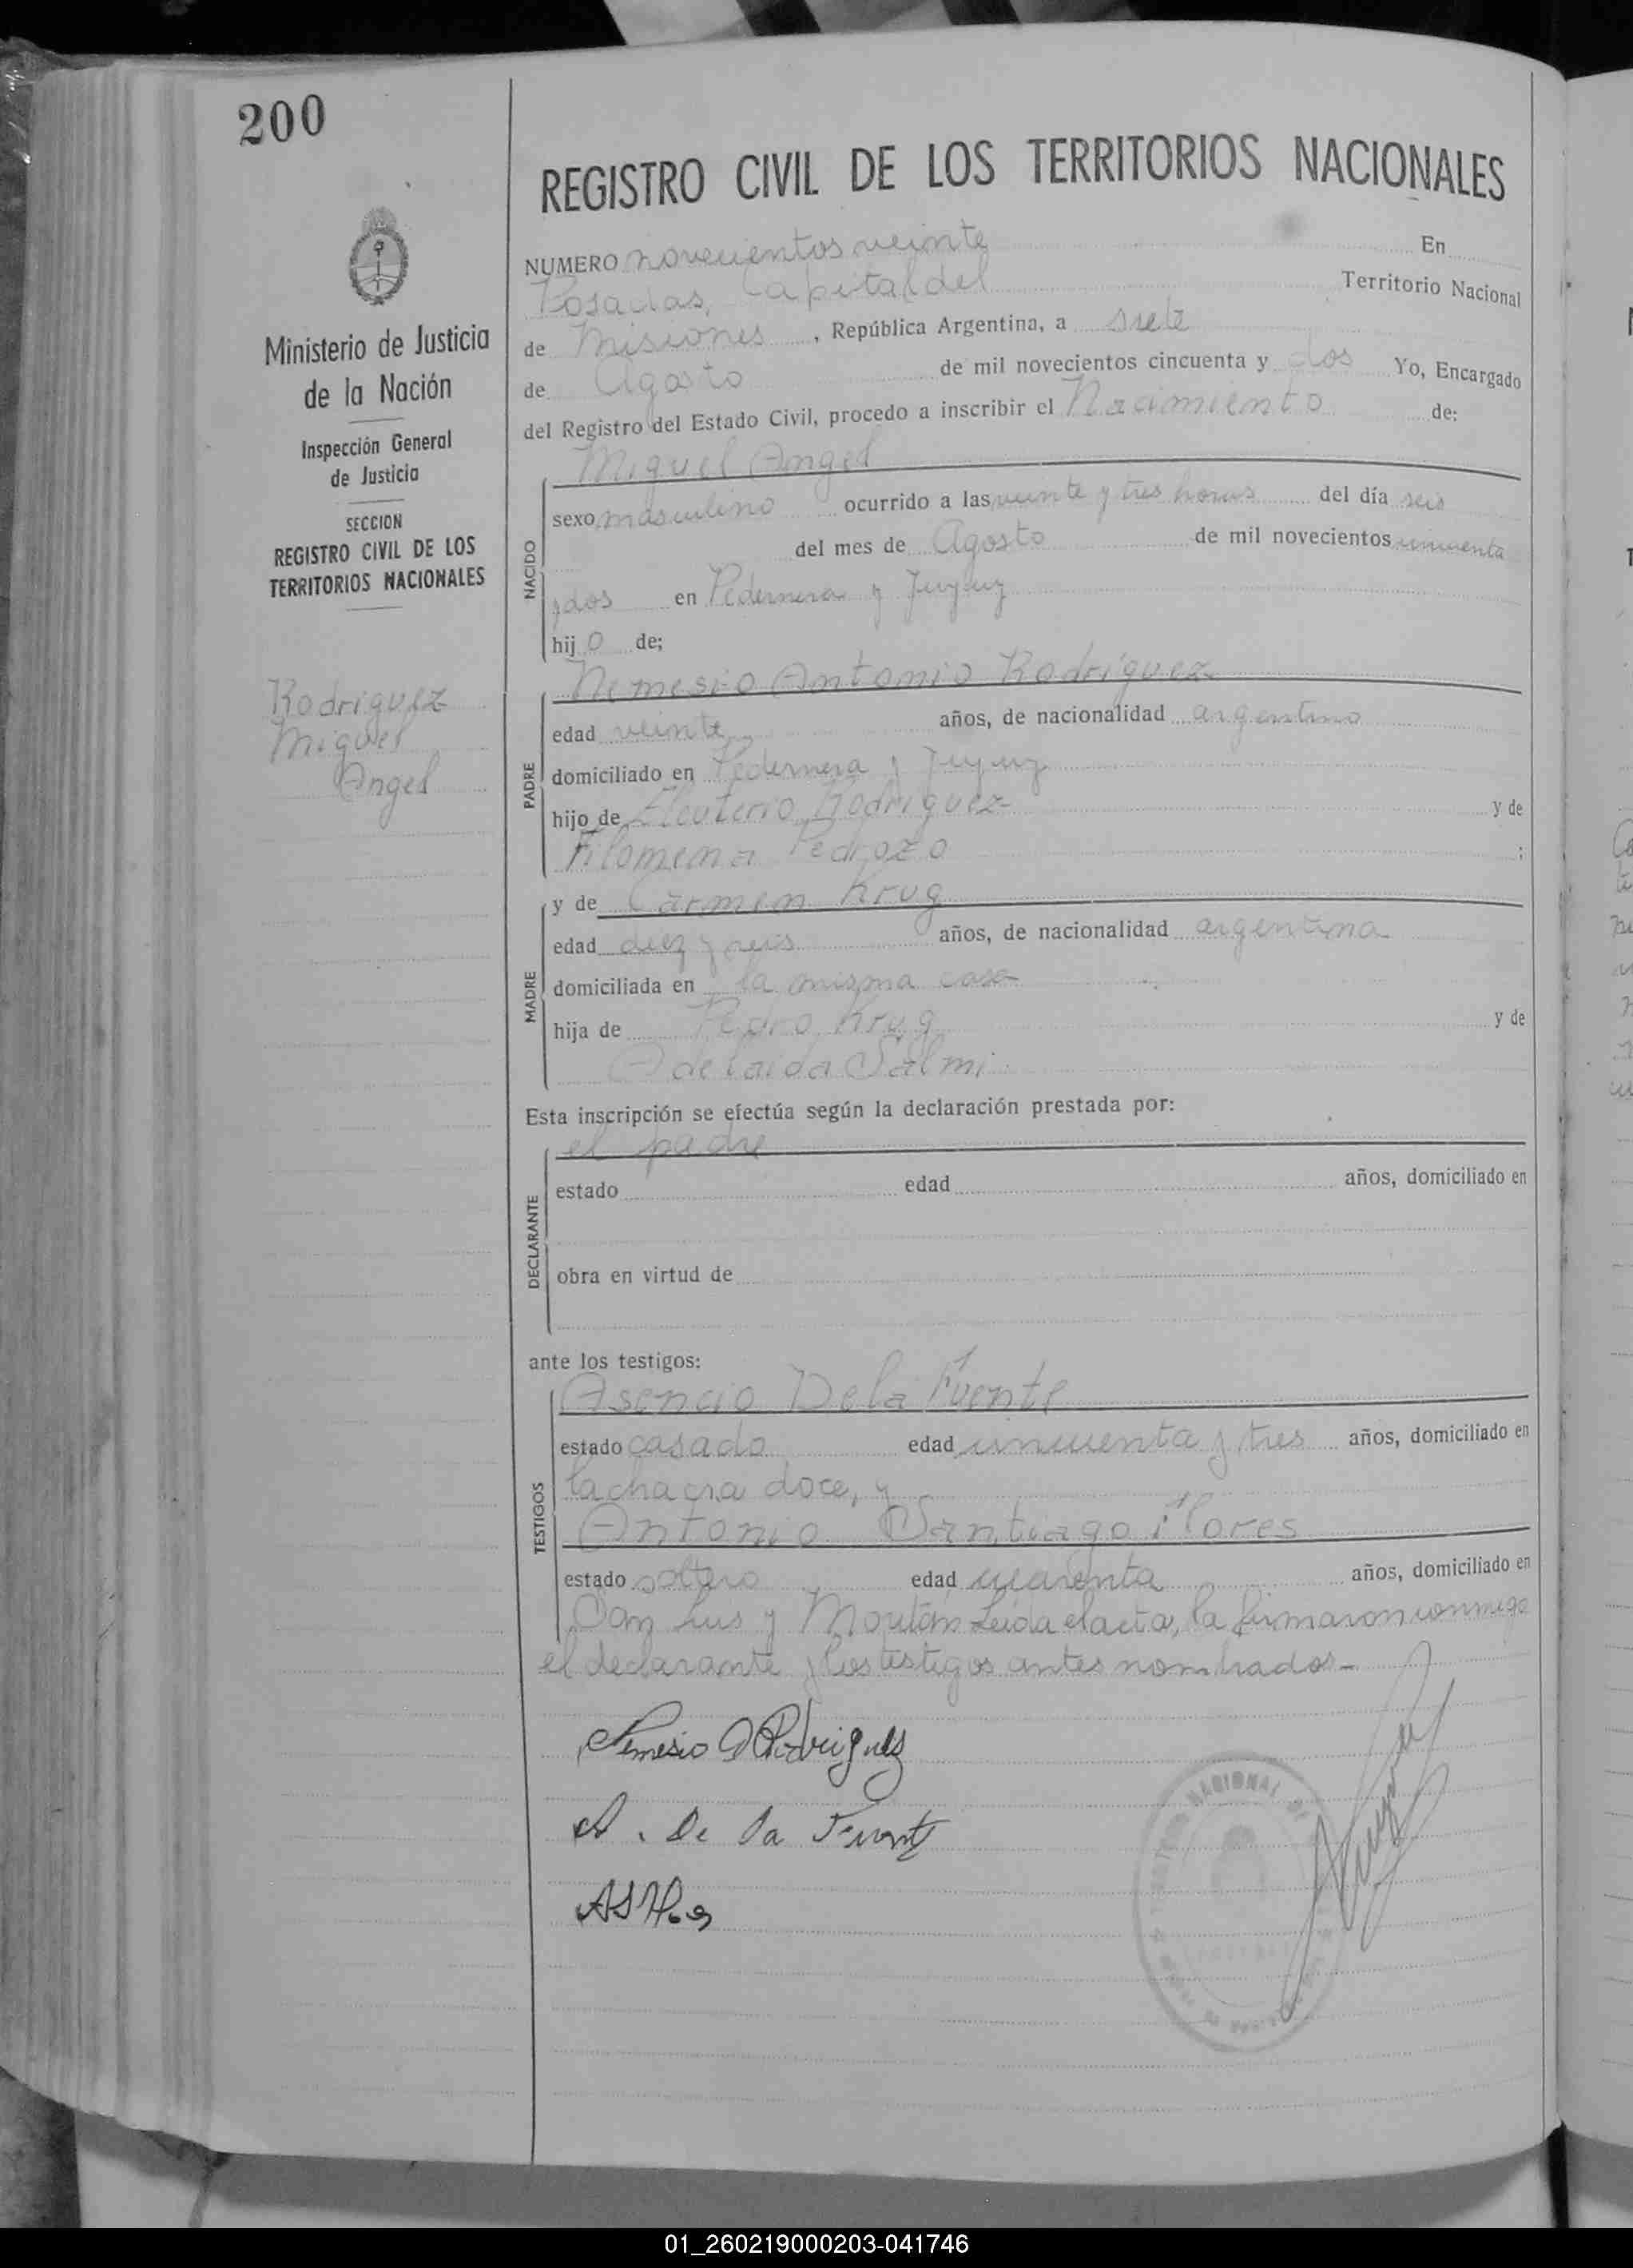 200
REGISTRO CIVIL DE LOS TERRITORIOS NACIONALES
Ministerio de Justicia
de la Nación
Inspección General
de Justicia
SECCION
REGISTRO CIVIL DE LOS
TERRITORIOS NACIONALES
Rodriguez
Miguel
Angel
NUMERO novecientos veinte En
Posadas, Capital del Territorio Nacional
de Misiones, República Argentina, a siete
de Agosto de mil novecientos cincuenta y dos Yo, Encargado
del Registro del Estado Civil, procedo a inscribir el Nacimiento de:
NACIDO
Miguel Angel
sexo masculino ocurrido a las veinte y tres horas del día seis
del mes de Agosto de mil novecientos cincuenta
y dos en Pedernera y Jujuy
hij o de;
PADRE
Nemesio Antonio Rodríguez
edad veinte años, de nacionalidad argentino
domiciliado en Pedernera y Jujuy
hijo de Eleuterio Rodriguez y de
Filomena Pedrozo ;
MADRE
y de Carmen Krug
edad diez y seis años, de nacionalidad argentina
domiciliada en la misma casa
hija de Pedro Krug y de
Adelaida Salmi
Esta inscripción se efectúa según la declaración prestada por:
DECLARANTE
el padre
estado edad años, domiciliado en
obra en virtud de
ante los testigos:
TESTIGOS
Asencio De la Fuente
estado casado edad cincuenta y tres años, domiciliado en
la chacra doce, y
Antonio Santiago Flores
estado soltero edad cuarenta años, domiciliado en
San Luis y Leida el acta, la firmaron conmigo
el declarante y los testigos antes nombrados-
Nemesio A Rodriguez
A. De la Fuente
NACIONAL DE
01_260219000203-041746